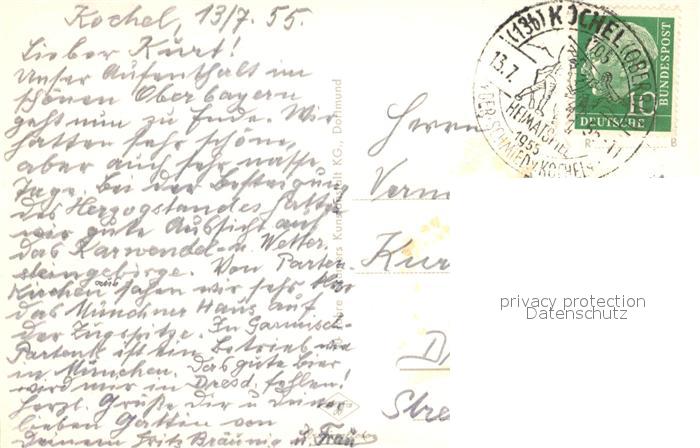 Kochel, 13/7. 55.
Lieber Kurt!
Unser Aufenthalt im
schönen Oberbayern
geht nun zu Ende. Wir
hatten sehr schöne,
aber auch sehr nasse
Tage. Bei der Besteigung
des Herzogstandes hatten
wir gute Aussicht auf
das Karwendel- u. Wetter-
steingebirge. Von Parten-
kirchen aus sahen wir sehr klar
das Münchner Haus auf
der Zugspitze. In Garmisch-
Partenk. ist ein Betrieb wie
in München. Das gute Bier
wird mir in Dresd. fehlen!
Herzl. Grüße dir u. deiner
lieben Gattin von
deinem Fritz Bräunig u. Frau
Kunstanstalt KG., Dortmund
(13b) KOCHEL (OBERB
13.7.
HEIMATSPIEL
1955
DER SCHMIED V. KOCHEL
10
DEUTSCHE
BUNDESPOST
Herrn
Verm
Kur
D
Stre
privacy protection
Datenschutz